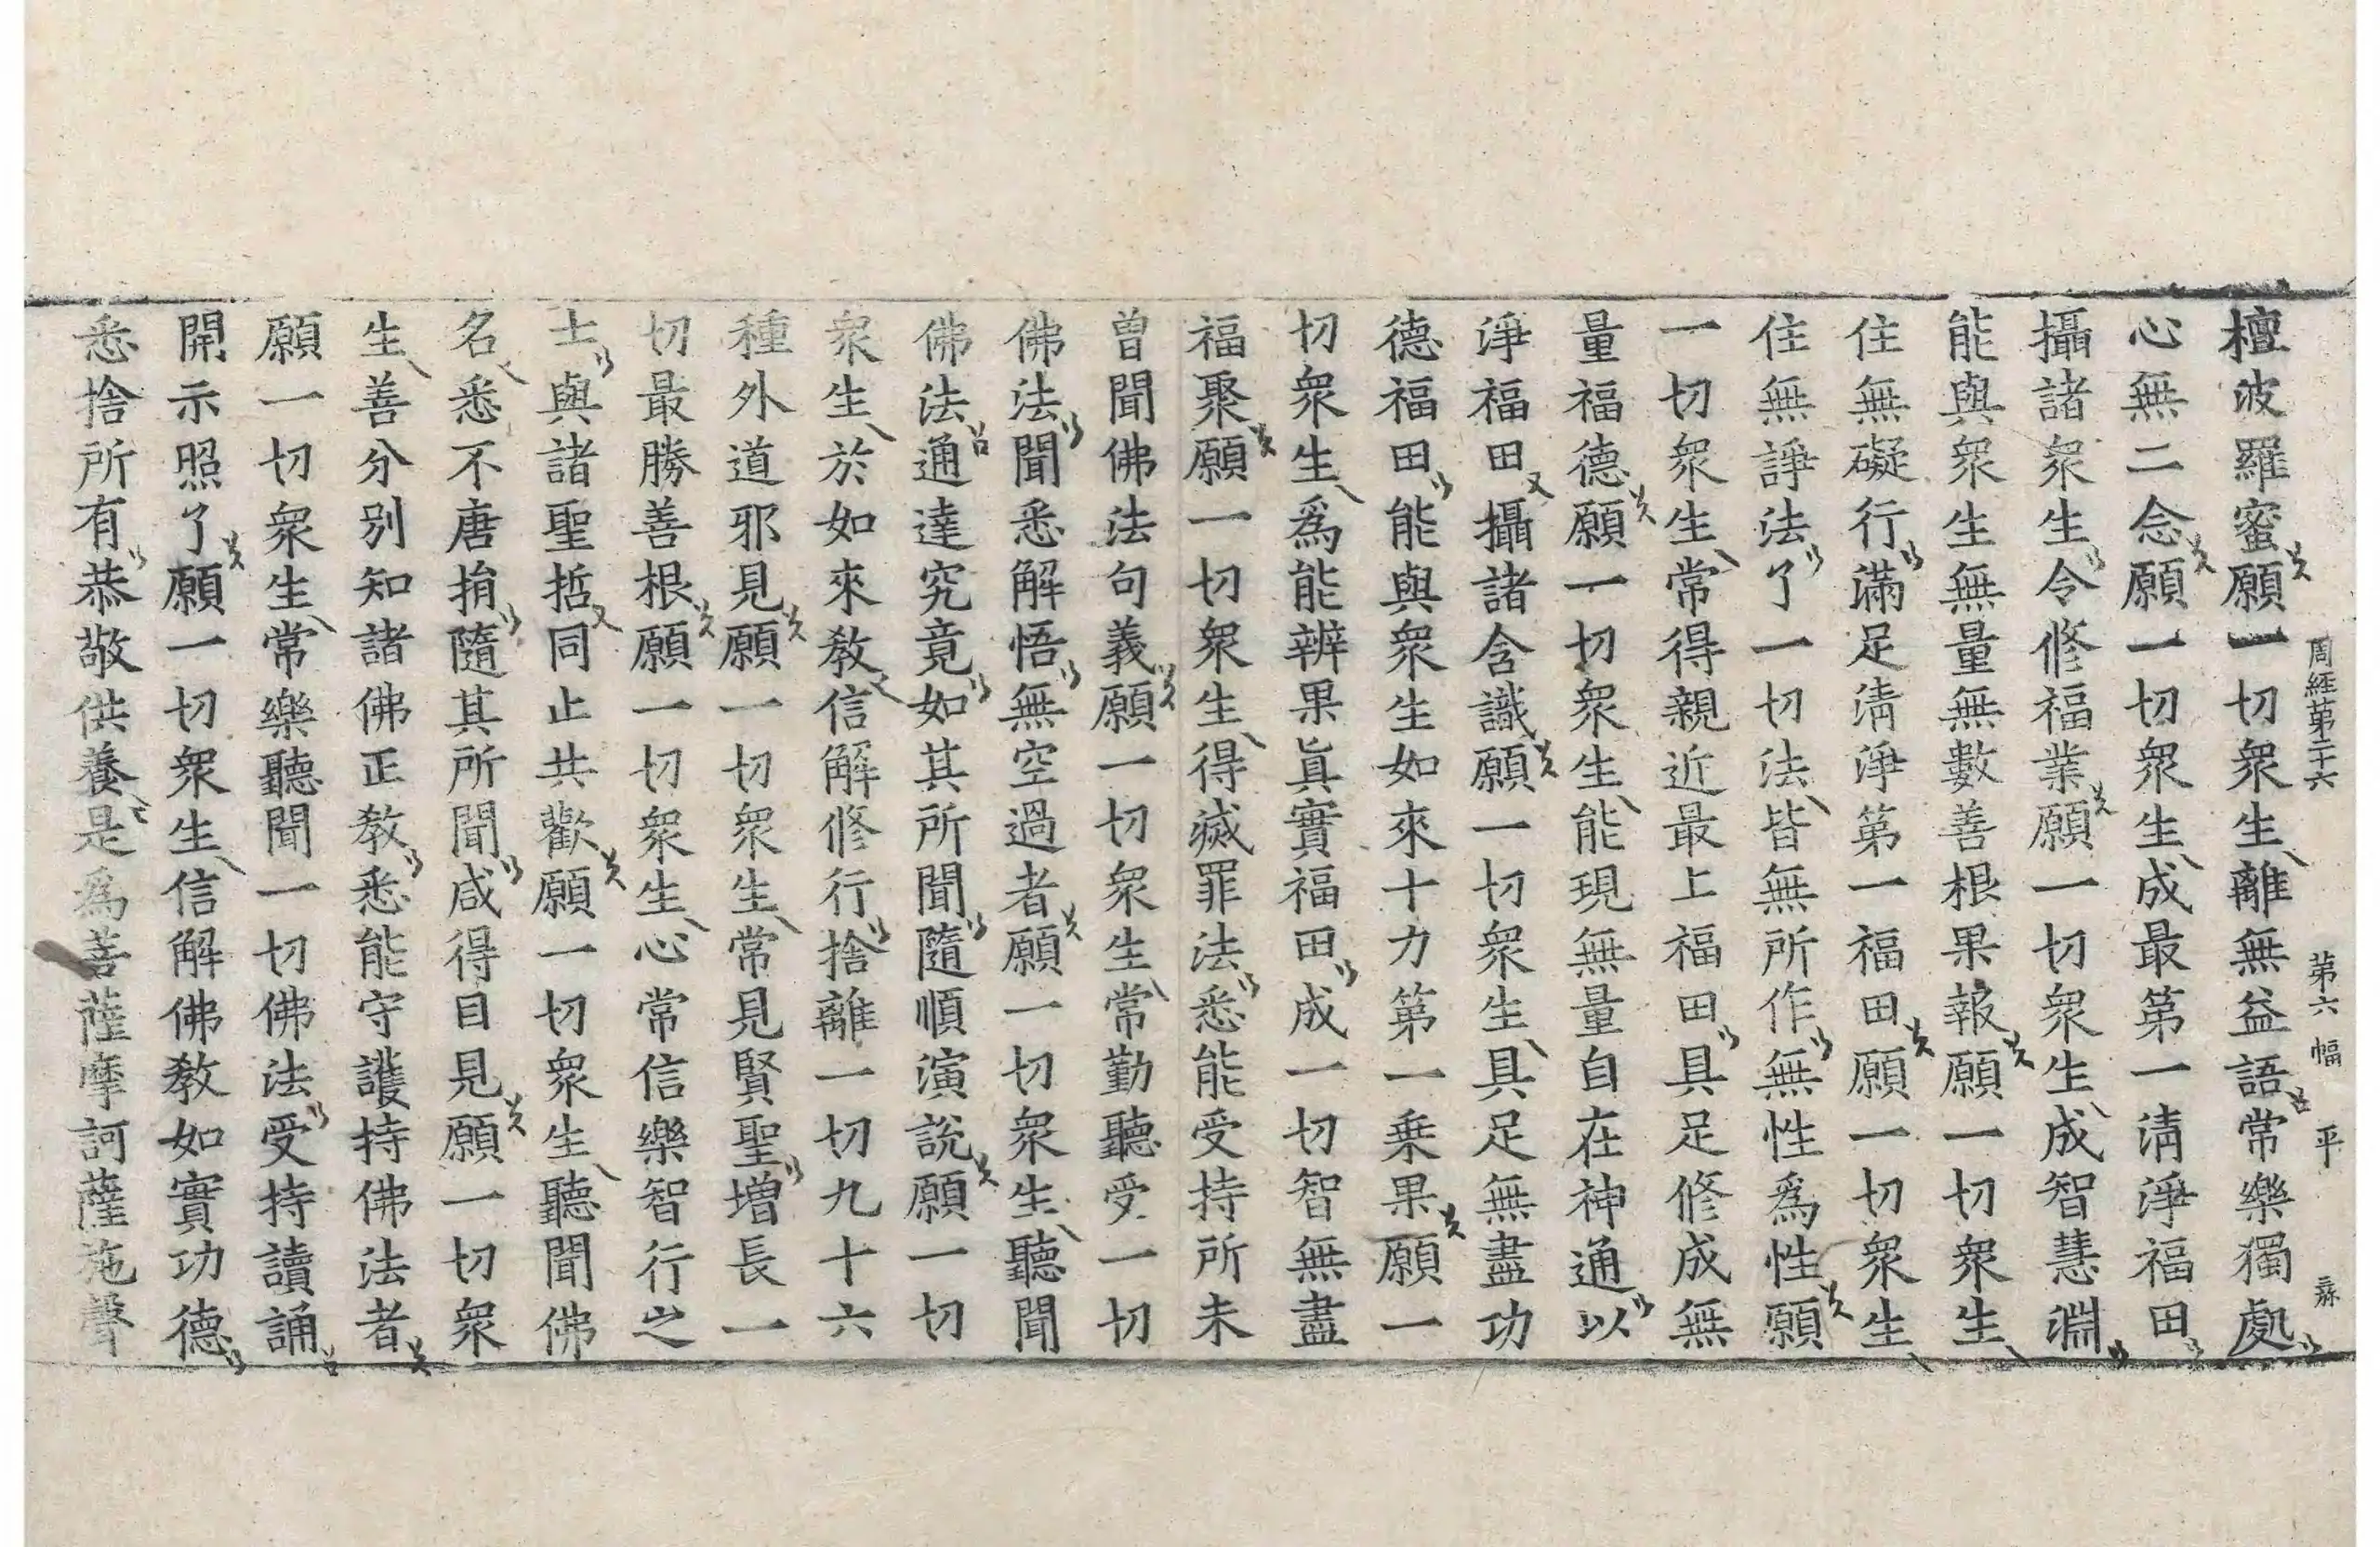 周經第二十六 第六幅 平
檀波羅蜜願一切衆生離無益語常樂獨處
心無二念願一切衆生成最第一清淨福田
攝諸衆生令修福業願一切衆生成智慧淵
能與衆生無量無數善根果報願一切衆生
住無礙行滿足清淨第一福田願一切衆生
住無諍法了一切法皆無所作無性爲性願
一切衆生常得親近最上福田具足修成無
量福德願一切衆生能現無量自在神通以
淨福田攝諸含識願一切衆生具足無盡功
德福田能與衆生如來十力第一乗果願一
切衆生爲能辨果眞實福田成一切智無盡
福聚願一切衆生得滅罪法悉能受持所未
曾聞佛法句義願一切衆生常勤聽受一切
佛法聞悉解悟無空過者願一切衆生聽聞
佛法通達究竟如其所聞隨順演說願一切
衆生於如來教信解修行捨離一切九十六
種外道邪見願一切衆生常見賢聖增長一
切最勝善根願一切衆生心常信樂智行之
士與諸聖哲同止共歡願一切衆生聽聞佛
名悉不唐捐隨其所聞咸得目見願一切衆
生善分別知諸佛正教悉能守護持佛法者
願一切衆生常樂聽聞一切佛法受持讀誦
開示照了願一切衆生信解佛教如實功德
悉捨所有恭敬供養是爲菩薩摩訶薩施聲